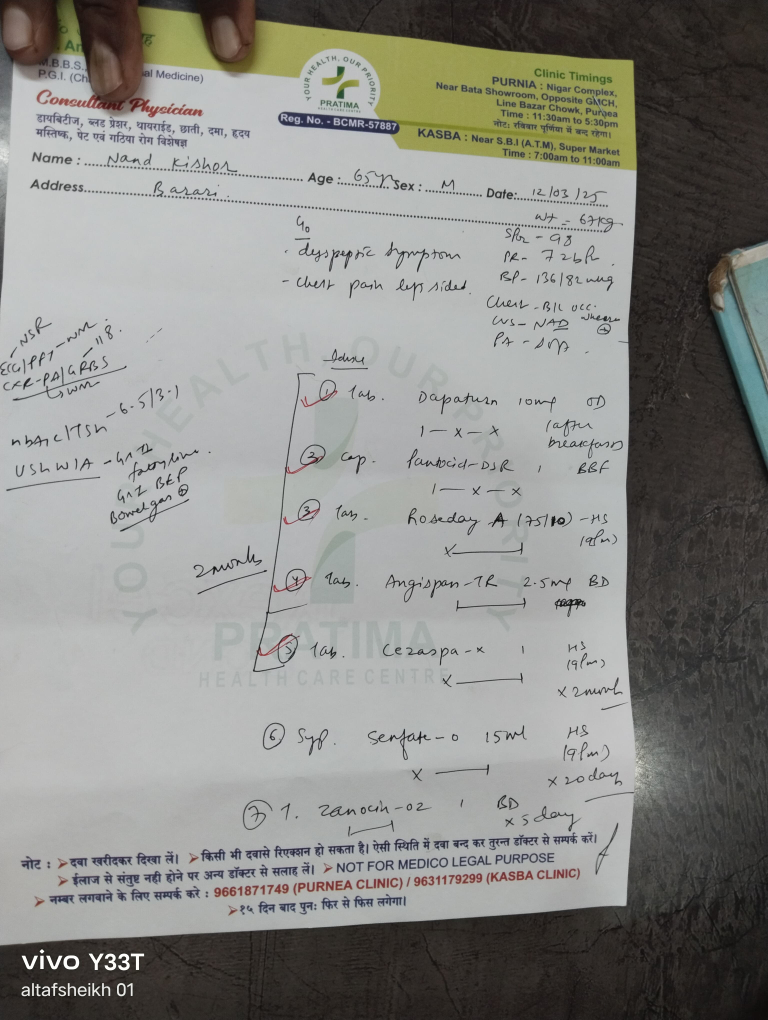 M.B.B.S.,
P.G.I. (Ch al Medicine)
Consultant Physician
डायबिटीज, ब्लड प्रेशर, थायराईड, छाती, दमा, हृदय
मस्तिष्क, पेट एवं गठिया रोग विशेषज्ञ
YOUR HEALTH, OUR PRIORITY
PRATIMA
HEALTH CARE CENTRE
Reg. No. - BCMR-57887
Clinic Timings
PURNIA : Nigar Complex,
Near Bata Showroom, Opposite GMCH,
Line Bazar Chowk, Purnea
Time : 11:30am to 5:30pm
नोट: रविवार पूर्णिया में बन्द रहेगा।
KASBA : Near S.B.I (A.T.M), Super Market
Time : 7:00am to 11:00am
Name : Nand Kishor Age : 65yr Sex : M Date: 12/03/25
Address Barari
Wt = 67kg
SPO2 - 98
PR - 72
BP - 136/82 mmHg
Chest - B/L
wheeze +
CVS - NAD
PA - Soft
C/o
- dyspeptic symptom
- Chest pain left sided.
NSR
ECG/PPT - WNL
118
CXR-PA/GRBS
WNL
HbA1c/TSH - 6.5/3.1
USG W/A - Gr II
fatty liver
Gr I BEP
Bowel gas +
Advise
① Tab. Dapaturn 10mg OD
1 - x - x (after breakfast)
② Cap. Pantocid-DSR 1 BBF
1 - x - x
③ Tab. Roseday A (75/10) - HS
x (9pm)
④ Tab. Angispan-TR 2.5mg BD
2 month
⑤ Tab. Cezaspa-x 1 HS
x (9pm)
x 2 month
⑥ Syp. Senfate-O 15ml HS
x (9pm)
x 20 day
⑦ T. Zanocin-OZ 1 BD
x 5 day
YOUR HEALTH OUR PRIORITY
PRATIMA
HEALTH CARE CENTRE
नोट : ➤ दवा खरीदकर दिखा लें। ➤ किसी भी दवासे रिएक्शन हो सकता है। ऐसी स्थिति में दवा बन्द कर तुरन्त डॉक्टर से सम्पर्क करें।
➤ ईलाज से संतुष्ट नही होने पर अन्य डॉक्टर से सलाह लें। ➤ NOT FOR MEDICO LEGAL PURPOSE
➤ नम्बर लगवाने के लिए सम्पर्क करे : 9661871749 (PURNEA CLINIC) / 9631179299 (KASBA CLINIC)
➤ १५ दिन बाद पुनः फिर से फिस लगेगा।
vivo Y33T
altafsheikh 01